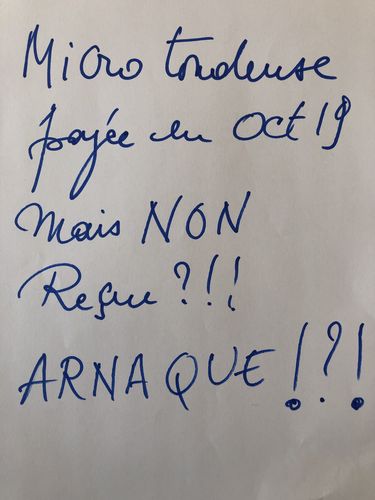 Micro tondeuse
payée en oct 19
mais NON
Reçue ?!!
ARNAQUE !?!